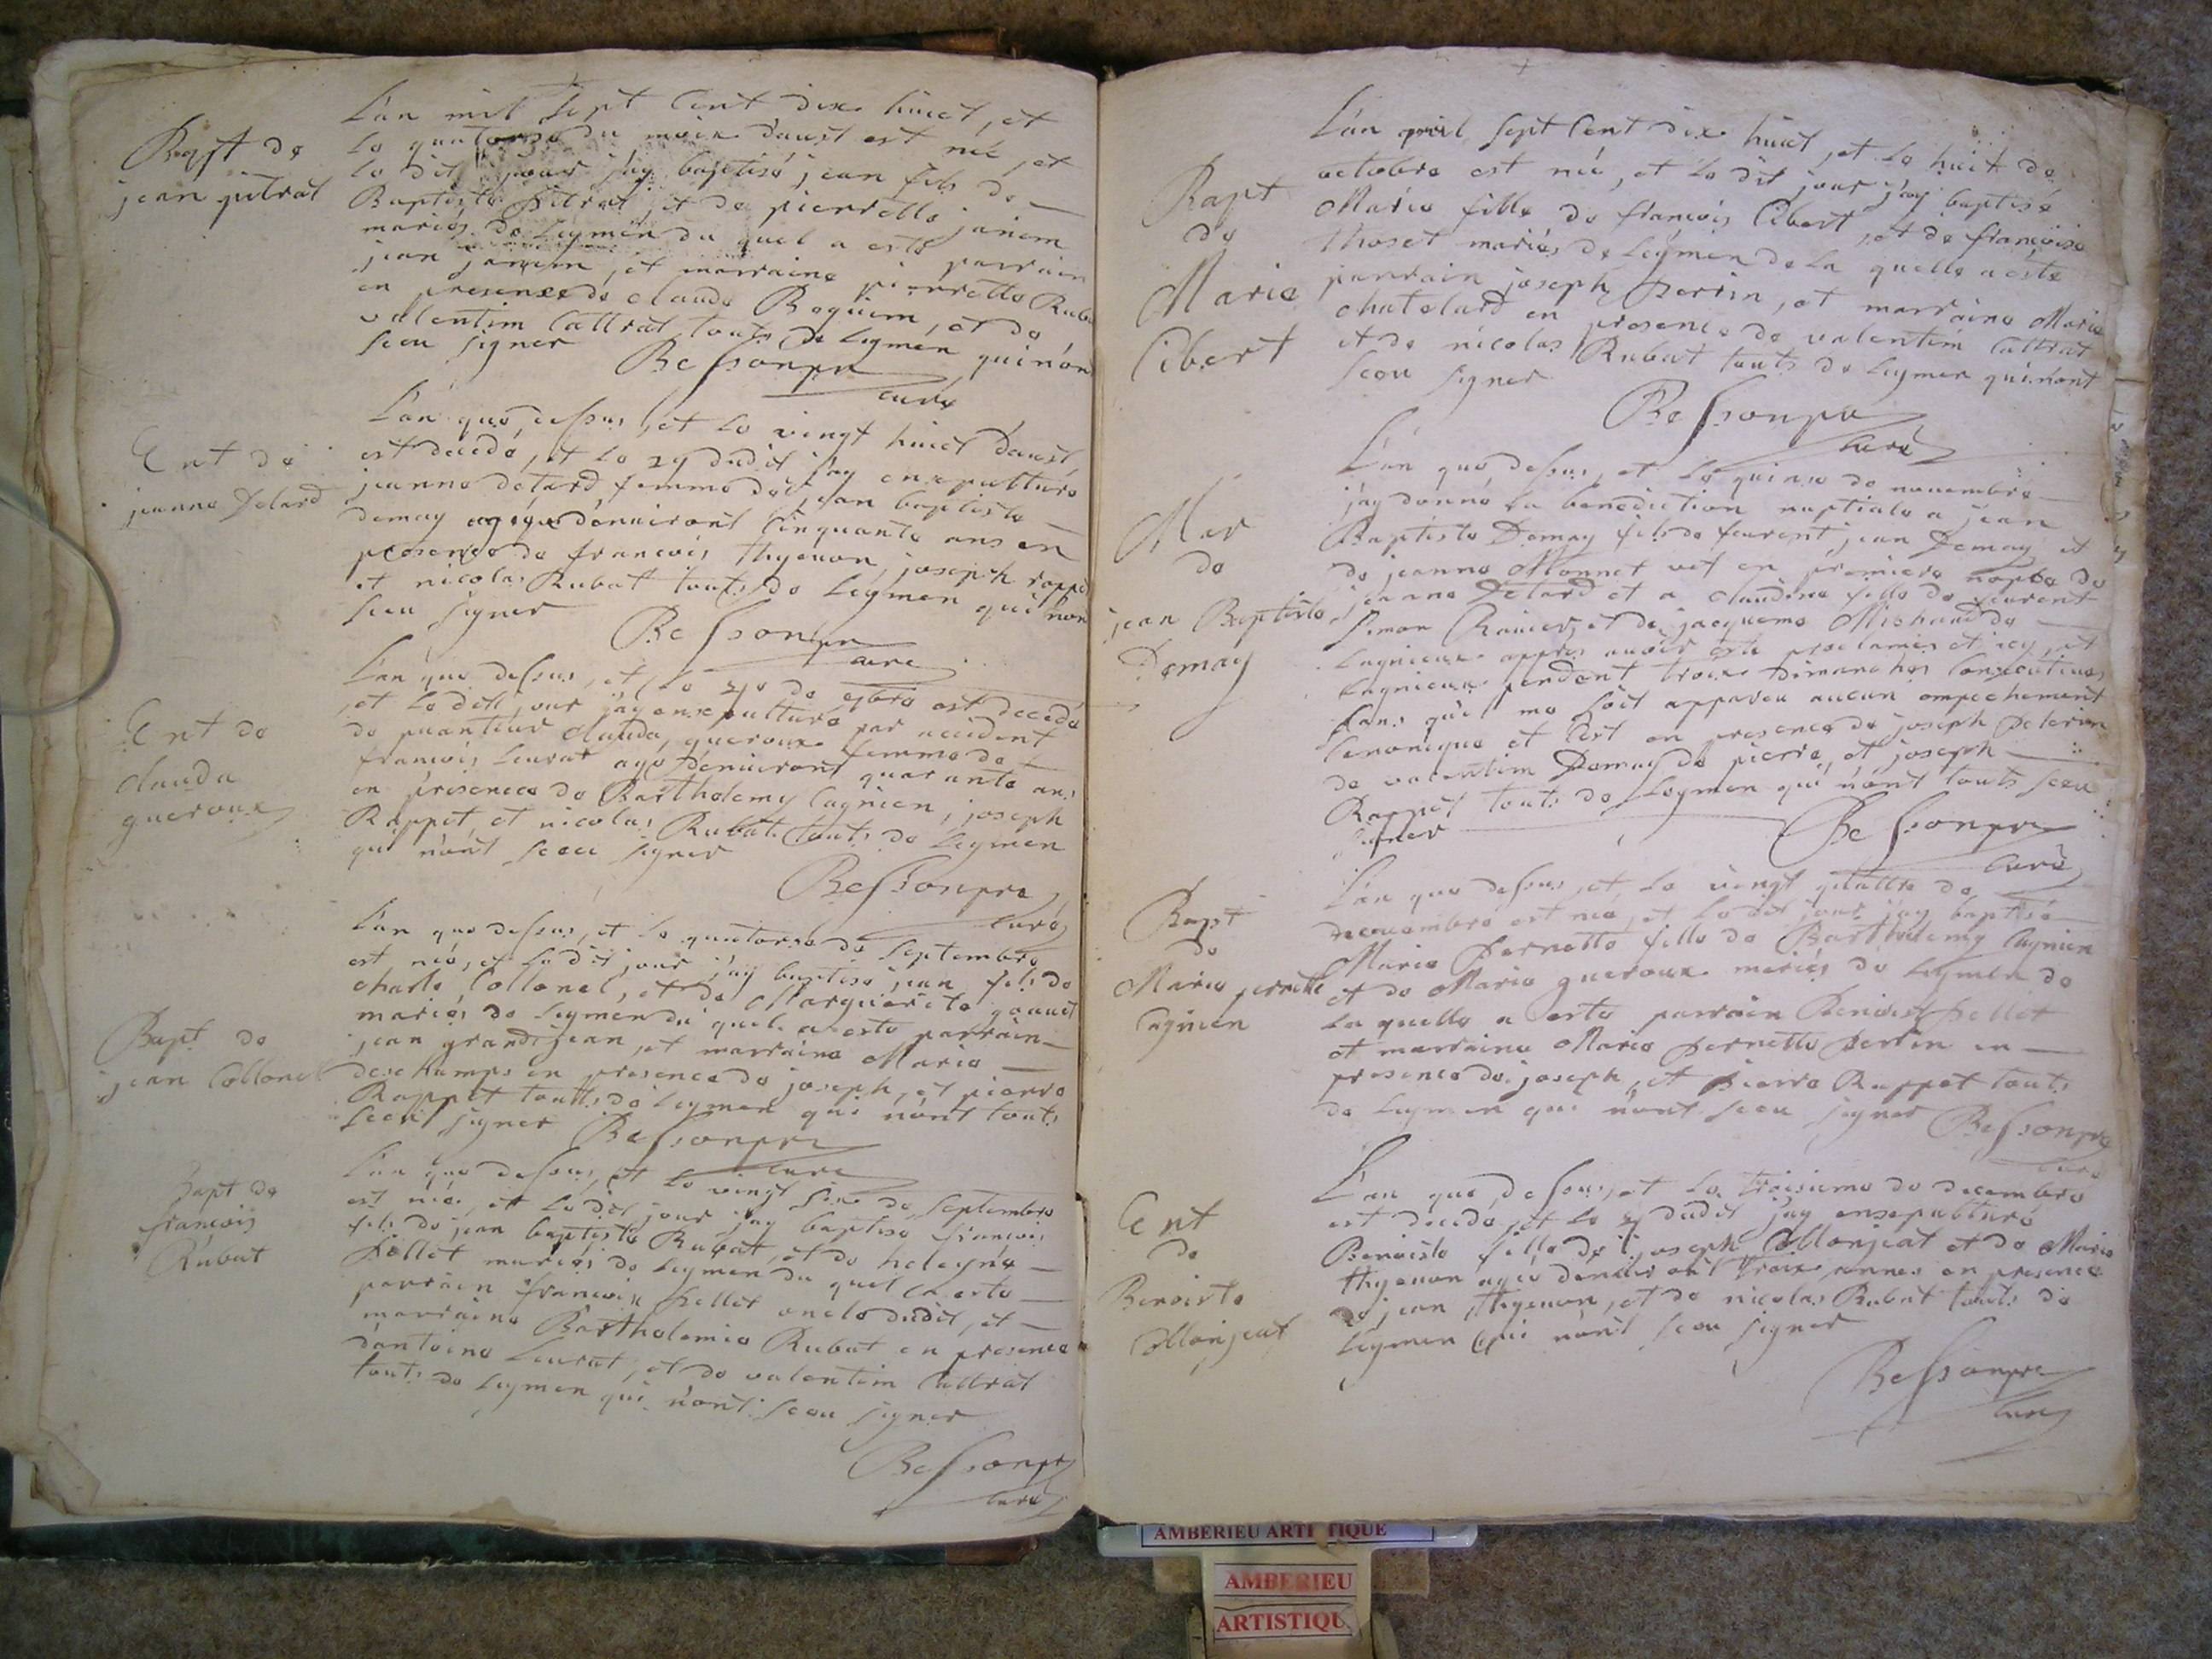 Bapt de
jean pitrat
L'an mil sept Cent dixe huict, et
le quatorse du mois d'aust est né, et
le dit jour j'ay baptisé jean fils de
Baptiste pitrat, et de pierrette janem
mariés de Leymen du quel a esté parrain
jean janem et marraine pierrette Ruba
en presence de claude Boquim, et de
valentim Cattrat touts De Leymen qui n'ón
sceu signer
Bessonpre
curé
Ent de
jeanne Detard
L'án que dessus, et le vingt huict Daust
est decedé, et le 29 dudit j'ay ensepulturé
jeanne detard, femme de jean baptiste
demay agée d'enuiront Cinquante ans en
presence de francois thyeuon, joseph rappe
et nicolas Rubat touts de Leymen qui n'on
sceu signer
Bessonpre
curé
Ent de
clauda
gueroux
L'an que dessus, et le de 7bre est decedé
et le dit jour j'ay ensepulturé par accident
de puanteur clauda gueroux femme de
francois Leurat agé Denuiront quarante ans
en présence de Bartholemy Cagnien, joseph
Rappet et nicolas Rubat touts de Leymen
qui n'ónt sceu signer
Bessonpre
curé
Bapt de
jean Collonel
L'an que dessus, et le quatorse de septembre
est né, et le dit jour j'ay baptisé jean fils de
charle Collonel, et de Marguerite gauuet
mariés de Leymen du quel a esté parrain
jean grandjean, et marraine Marie
deschamps en presence de joseph, et pierre
Rappet touts de Leymen qui n'ónt touts
sceu signer
Bessonpre
curé
Bapt de
françois
Rubat
L'an que dessus, et le vingt sixe de septembre
est né, et le dit jour j'ay baptisé françois
fils de jean baptiste Rubat, et de heleyne
pellet mariés de Leymen du quel a esté
parrain françoix pellet oncle dudit, et
marraine Bartholemie Rubat en presence
dantoine Leurat, et de valentim Cattrat
touts de Leymen qui n'ont sceu signer
Bessonpre
curé
Bapt
de
Marie
Cibert
L'án mil sept Cent dixe huict, et le huit de
octobre est né, et le dit jour j'ay baptisé
Marie fille de françois Cibert, et de françoise
thoset mariés de Leymen de la quelle a esté
parrain joseph perrin, et marraine Marie
chatelard en presence de valentim Cattrat
et de nicolas Rubat touts de Leymen qui n'ont
sceu signer
Bessonpre
curé
Mar
de
jean Baptiste
Demay
L'án que dessus, et le quinse de nouembre
j'ay donné la benediction nuptiale a jean
Baptiste Demay fils de feurent jean Demay et
de jeanne Monnet vef en premiere nopce de
jeanne Detard et a claudine fille de feurent
simon Rauier, et de jacqueme Michaud de
Lagnieux appres auoir esté proclamés et icy, et
Lagnieux pendent troix Dimanches Consecutiues
sans qu'il me soit appareu aucun ompechement
Canonique et C'est en presence de joseph peterin
de valentim Demay de pierre, et joseph
Rappet touts de Leymen qui n'ónt touts sceu
signer
Bessonpre
curé
Bapt
de
Marie pernette
Cagnien
L'an que dessus, et le vingt quattre de
nouembre est né, et le dit jour j'ay baptisé
Marie pernette fille de Bartholemy Cagnien
et de Marie gueroux mariés de Leymen de
la quelle a esté parrain Benoist pellet
et marraine Marie pernette perrin en
presence de joseph, et pierre Rappet touts
de Leymen qui n'ont sceu signer
Bessonpre
curé
Ent
de
Benoiste
Collonjeat
L'an que dessus, et le troisieme de decembre
est decedé, et le dudit j'ay ensepulturé
Benoiste fille de joseph Collonjeat et de Marie
thyeuon agéé denuiront troix annes en presence
de jean thyeuon, et de nicolas Rubat touts de
Leymen qui n'ont sceu signer
Bessonpre
curé
AMBERIEU ARTISTIQUE
AMBERIEU
ARTISTIQU